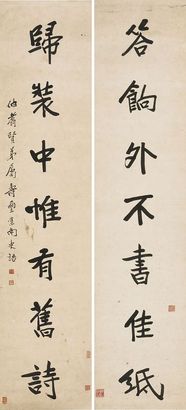 答餉外不書佳紙
歸裝中惟有舊詩
賢弟屬